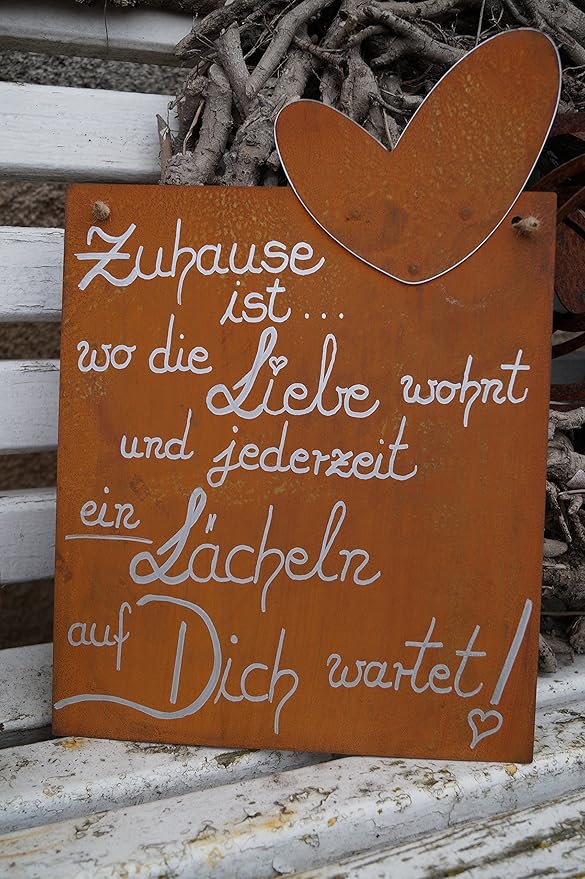 Zuhause
ist...
wo die Liebe wohnt
und jederzeit
ein Lächeln
auf Dich wartet!